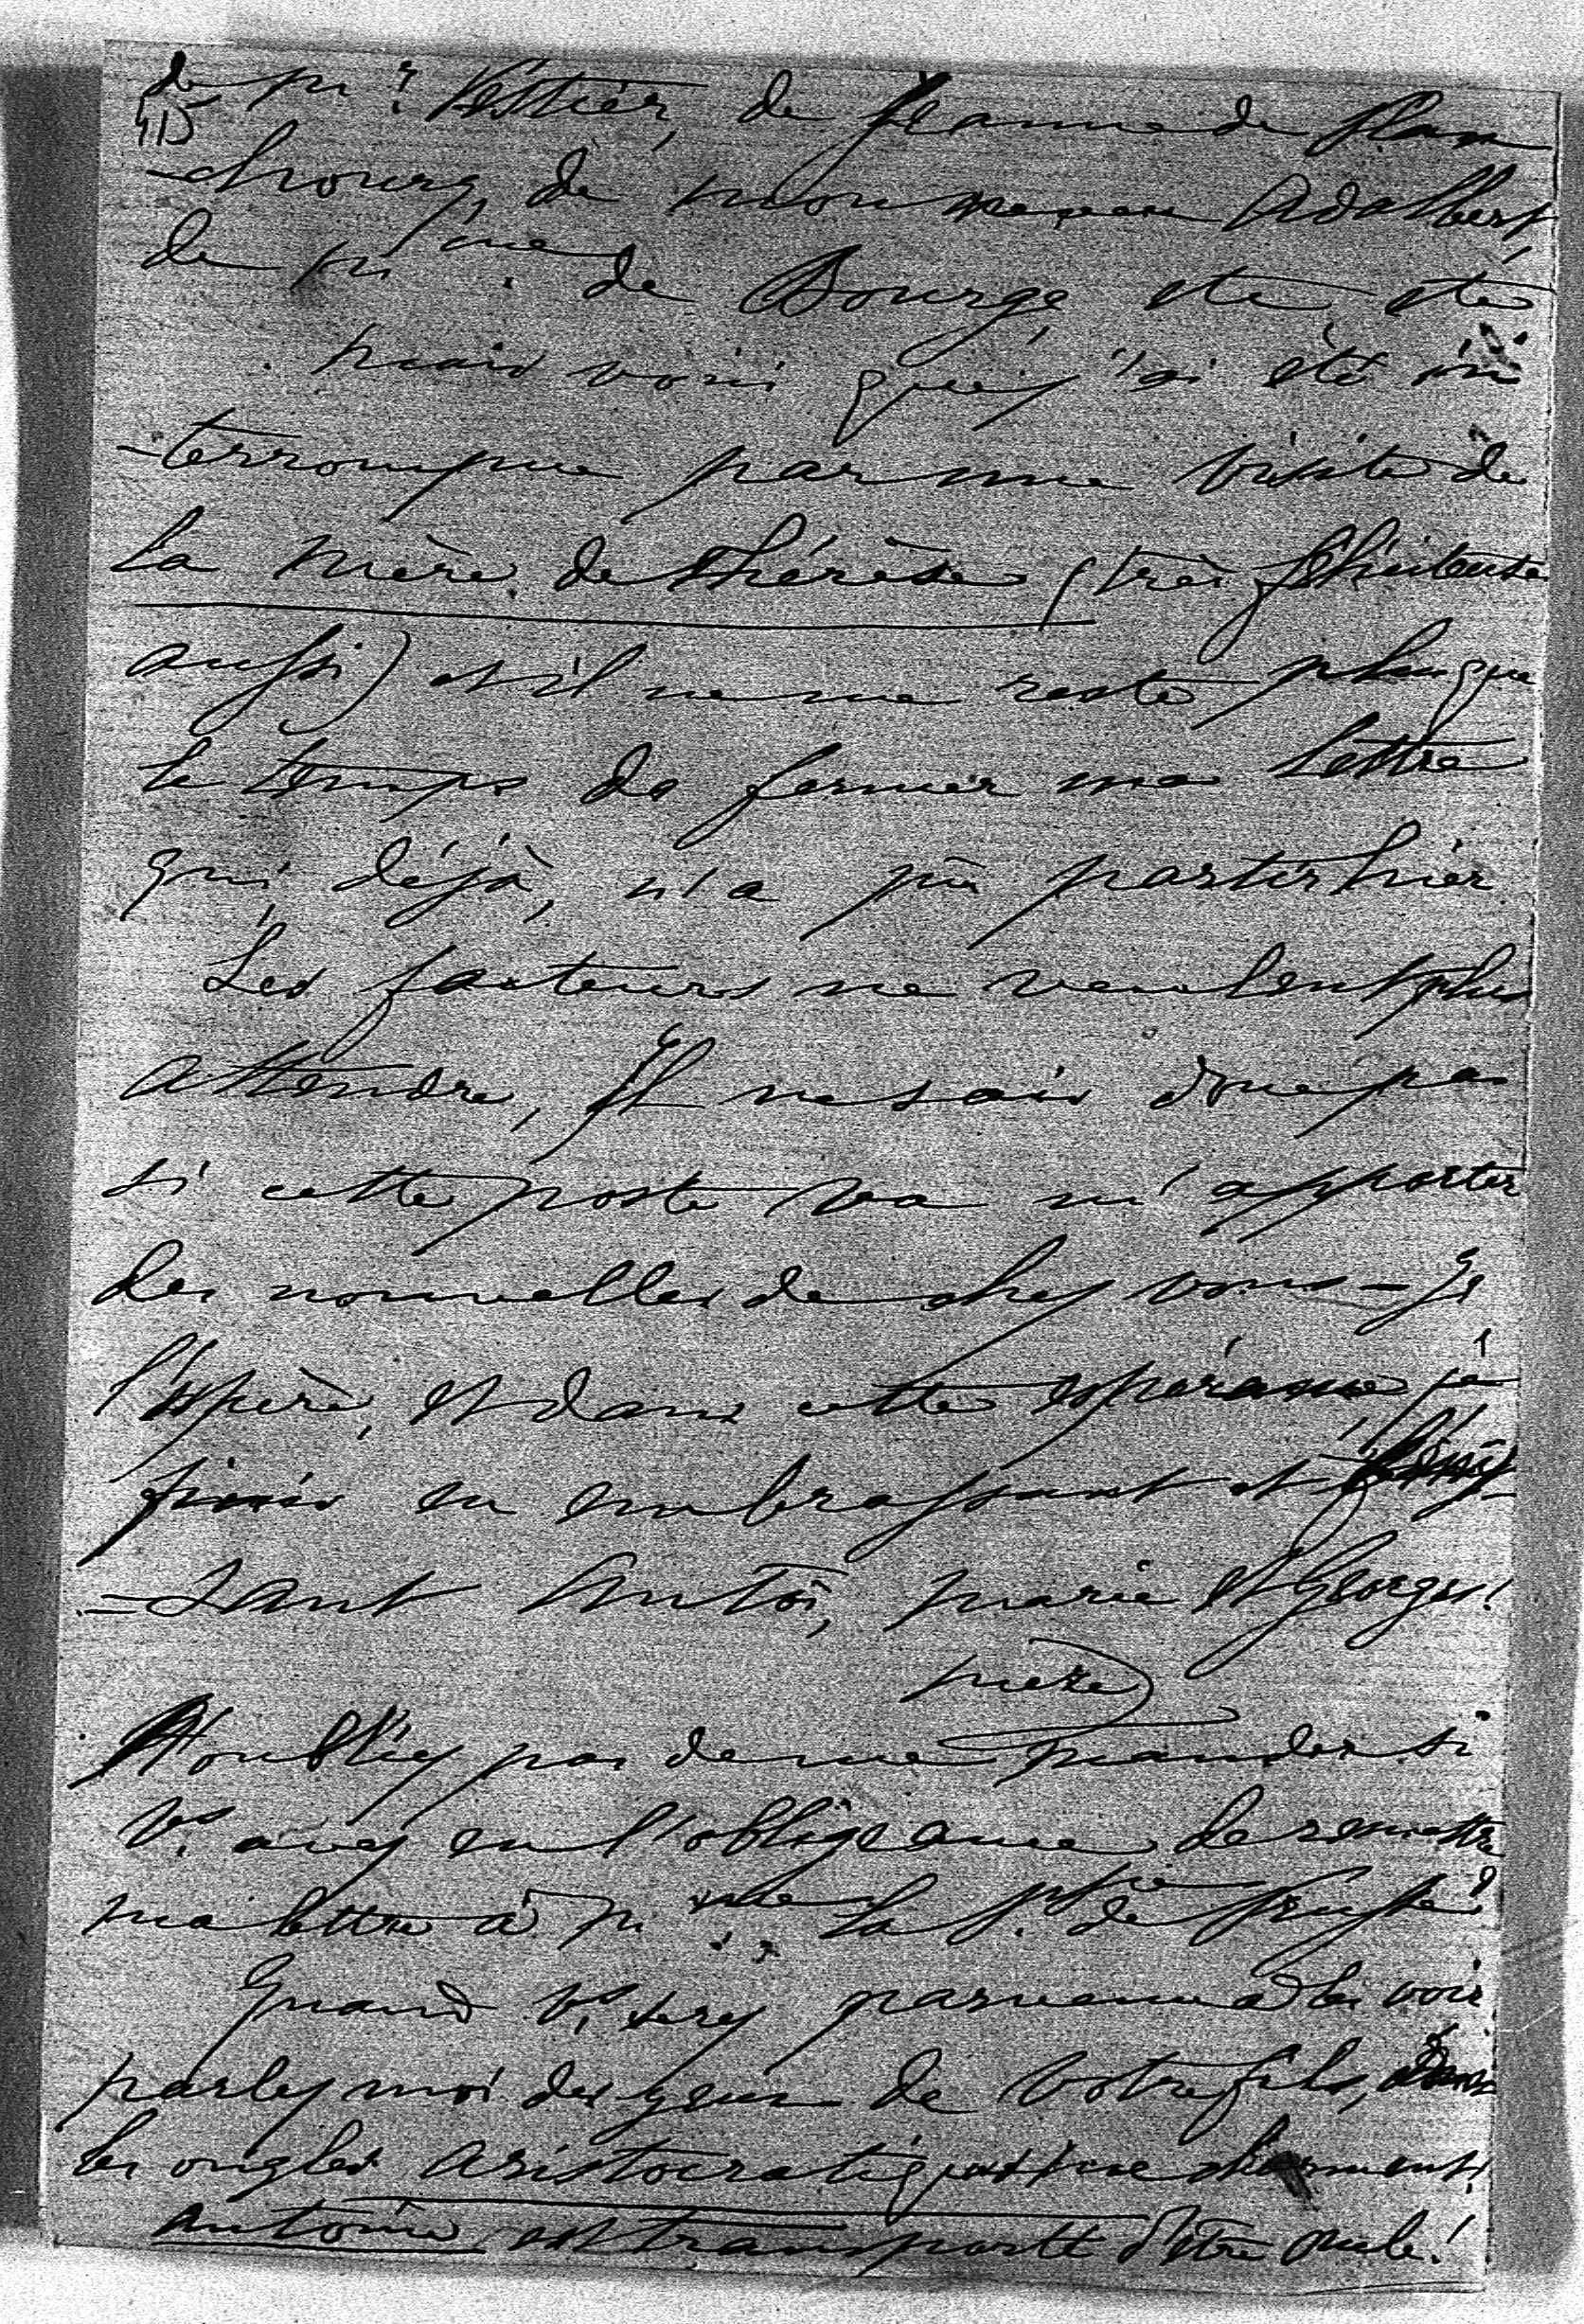 de Mr. Vettier, de Jeanne de Plan
415
-chourg, de mon neveu Adalbert,
de Mme. de Bourge, etc, etc
mais voici que j'ai été in
-terrompue par une visite de
la mère de Thérèse (très féliciteuse
aussi) et il ne me reste plus que
le temps de fermer ma lettre
qui, déjà, n'a pû partir hier.
Les facteurs ne veulent plus
attendre, Je ne sais donc pas
si cette poste va m'apporter
des nouvelles de chez vous - Je
l'espère, et dans cette espérance, je
finis en embrassant et bénis
=sant Antoi, Marie et Georges!
mère
N'oubliez pas de me mander si
Vs. avez eu l'obligeance de remettre
ma lettre à Mme. la Psse. de
Quand Vs. serez parvenue à les voir
parlez moi des yeux de votre fils, dont
les ongles aristocratiques me charment,
Antoine est transporté d'être oncle!